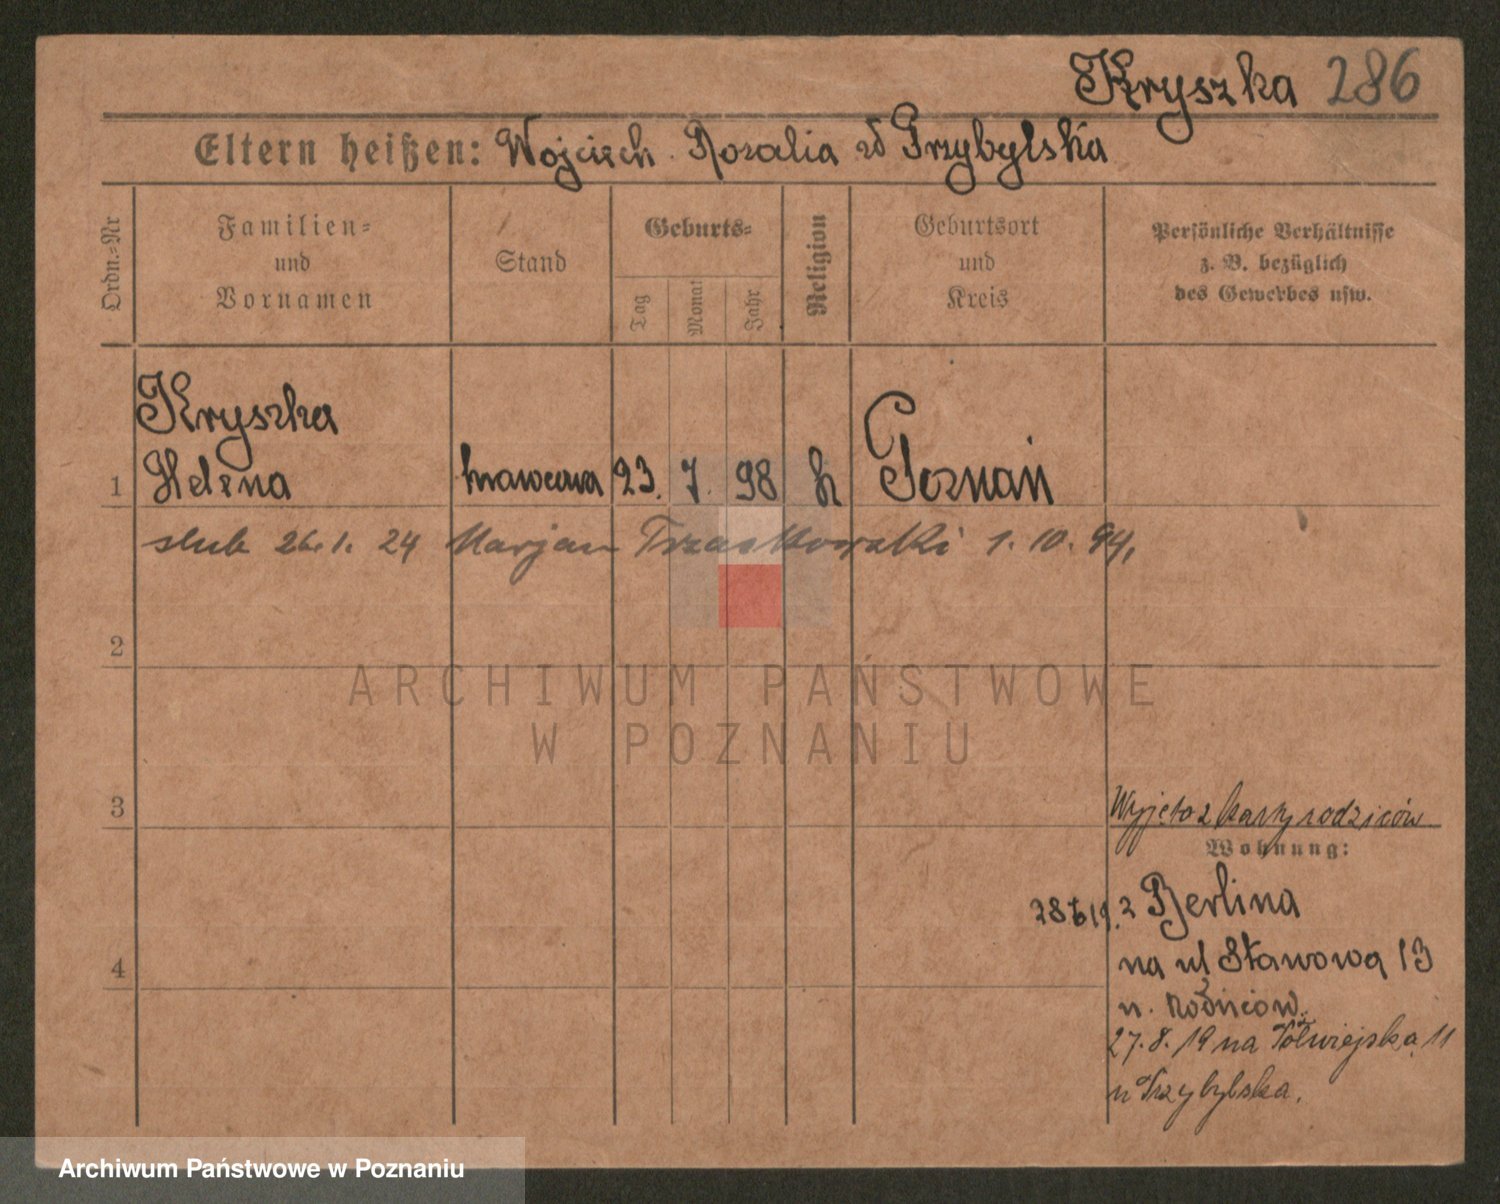 Kryszka 286
Eltern heißen: Wojciech. Rozalia zd Przybylska
Ordn.=Nr
Familien=
und
Vornamen
Stand
Geburts=
Tag
Monat
Jahr
Religion
Geburtsort
und
Kreis
Persönliche Verhältnisse
z. B. bezüglich
des Gewerbes usw.
Kryszka
1 Helena krawcowa 23. 7. 98 k Poznań
slub 26.1.24 Marjan Trzaskowski 1.10.94,
2
ARCHIWUM PAŃSTWOWE
W POZNANIU
3
Wyjęto z karty rodziców
Wohnung:
z Berlina
4
na ul Stawową 13
u. rodziców.
27.8.19 na Półwiejską 11
u Przybylska.
Archiwum Państwowe w Poznaniu